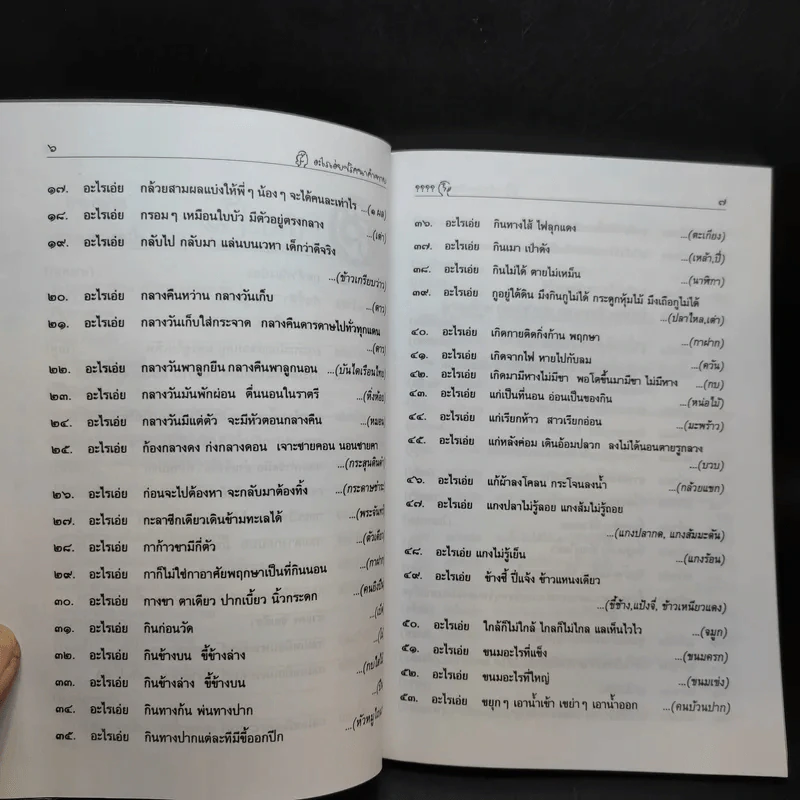 ๖
อะไรเอ่ย
๑๗. อะไรเอ่ย กล้วยสามผลแบ่งให้พี่ๆ น้องๆ จะได้คนละเท่าไร
...(๑ ผล)
๑๘. อะไรเอ่ย กรอมๆ เหมือนใบบัว มีตัวอยู่ตรงกลาง
...(เต่า)
๑๙. อะไรเอ่ย กลับไป กลับมา แล่นบนเวหา เด็กว่าดีจริง
...(ข้าวเกรียบว่าว)
๒๐. อะไรเอ่ย กลางคืนหว่าน กลางวันเก็บ
...(ดาว)
๒๑. อะไรเอ่ย กลางวันเก็บใส่กระจาด กลางคืนดารดาษไปทั่วทุกแดน
...(ดาว)
๒๒. อะไรเอ่ย กลางวันพาลูกยืน กลางคืนพาลูกนอน
...(บันไดเรือนไทย)
๒๓. อะไรเอ่ย กลางวันมันพักผ่อน ตื่นนอนในราตรี
...(หิ่งห้อย)
๒๔. อะไรเอ่ย กลางวันมีแต่ตัว จะมีหัวตอนกลางคืน
...(หมอน)
๒๕. อะไรเอ่ย ก้องกลางดง ก่งกลางดอน เจาะชายคอน นอนชายคา
...(กระสุนดินดำ
๒๖. อะไรเอ่ย ก่อนจะไปต้องหา จะกลับมาต้องทิ้ง
...(กระดาษชำระ
๒๗. อะไรเอ่ย กะลาซีกเดียวเดินข้ามทะเลได้
...(พระจันทร์
๒๘. อะไรเอ่ย กาก้าวขามีกี่ตัว
...(ตัวเดียว
๒๙. อะไรเอ่ย กาก็ไม่ใช่กาอาศัยพฤกษาเป็นที่กินนอน
...(กาฝาก
๓๐. อะไรเอ่ย กางขา ตาเดียว ปากเบี้ยว นิ้วกระดก
...(คนยิงปืน
๓๑. อะไรเอ่ย กินก่อนวัด
๓๒. อะไรเอ่ย กินข้างบน ขี้ข้างล่าง
๓๓. อะไรเอ่ย กินข้างล่าง ขี้ข้างบน
...(กบไสไม้
๓๔. อะไรเอ่ย กินทางก้น พ่นทางปาก
๓๕. อะไรเอ่ย กินทางปากแต่ละทีมีขี้ออกปีก
๗
๓๖. อะไรเอ่ย กินทางไส้ ไฟลุกแดง
...(ตะเกียง)
๓๗. อะไรเอ่ย กินเมา เป่าดัง
...(เหล้า,ปี่)
๓๘. อะไรเอ่ย กินไม่ได้ ตายไม่เหม็น
...(นาฬิกา)
๓๙. อะไรเอ่ย กูอยู่ใต้ดิน มึงกินกูไม่ได้ กระดูกหุ้มไม้ มึงเถือกูไม่ได้
...(ปลาไหล,เต่า)
๔๐. อะไรเอ่ย เกิดกายติดกิ่งก้าน พฤกษา
...(กาฝาก)
๔๑. อะไรเอ่ย เกิดจากไฟ หายไปกับลม
...(ควัน)
๔๒. อะไรเอ่ย เกิดมามีหางไม่มีขา พอโตขึ้นมามีขา ไม่มีหาง
...(กบ)
๔๓. อะไรเอ่ย แก่เป็นที่นอน อ่อนเป็นของกิน
...(หน่อไม้)
๔๔. อะไรเอ่ย แก่เรียกห้าว สาวเรียกอ่อน
...(มะพร้าว)
๔๕. อะไรเอ่ย แก่หลังค่อม เดินอ้อมปลวก ลงไม่ได้นอนตายรูกลวง
...(บวบ)
๔๖. อะไรเอ่ย แก้ผ้าลงโคลน กระโจนลงน้ำ
...(กล้วยแขก)
๔๗. อะไรเอ่ย แกงปลาไม่รู้ลอย แกงส้มไม่รู้ถอย
...(แกงปลากด, แกงส้มมะดัน)
๔๘. อะไรเอ่ย แกงไม่รู้เย็น
...(แกงร้อน)
๔๙. อะไรเอ่ย ช้างขี้ ปี่แจ้ง ข้าวแหนงเดียว
...(ขี้ช้าง,แป้งจี่, ข้าวเหนียวแดง)
๕๐. อะไรเอ่ย ใกล้ก็ไม่ใกล้ ไกลก็ไม่ไกล แลเห็นไวไว
...(จมูก)
๕๑. อะไรเอ่ย ขนมอะไรที่แข็ง
...(ขนมครก)
๕๒. อะไรเอ่ย ขนมอะไรที่ใหญ่
...(ขนมเข่ง)
๕๓. อะไรเอ่ย ขยุกๆ เอาน้ำเข้า เขย่าๆ เอาน้ำออก
...(คนบ้วนปาก)